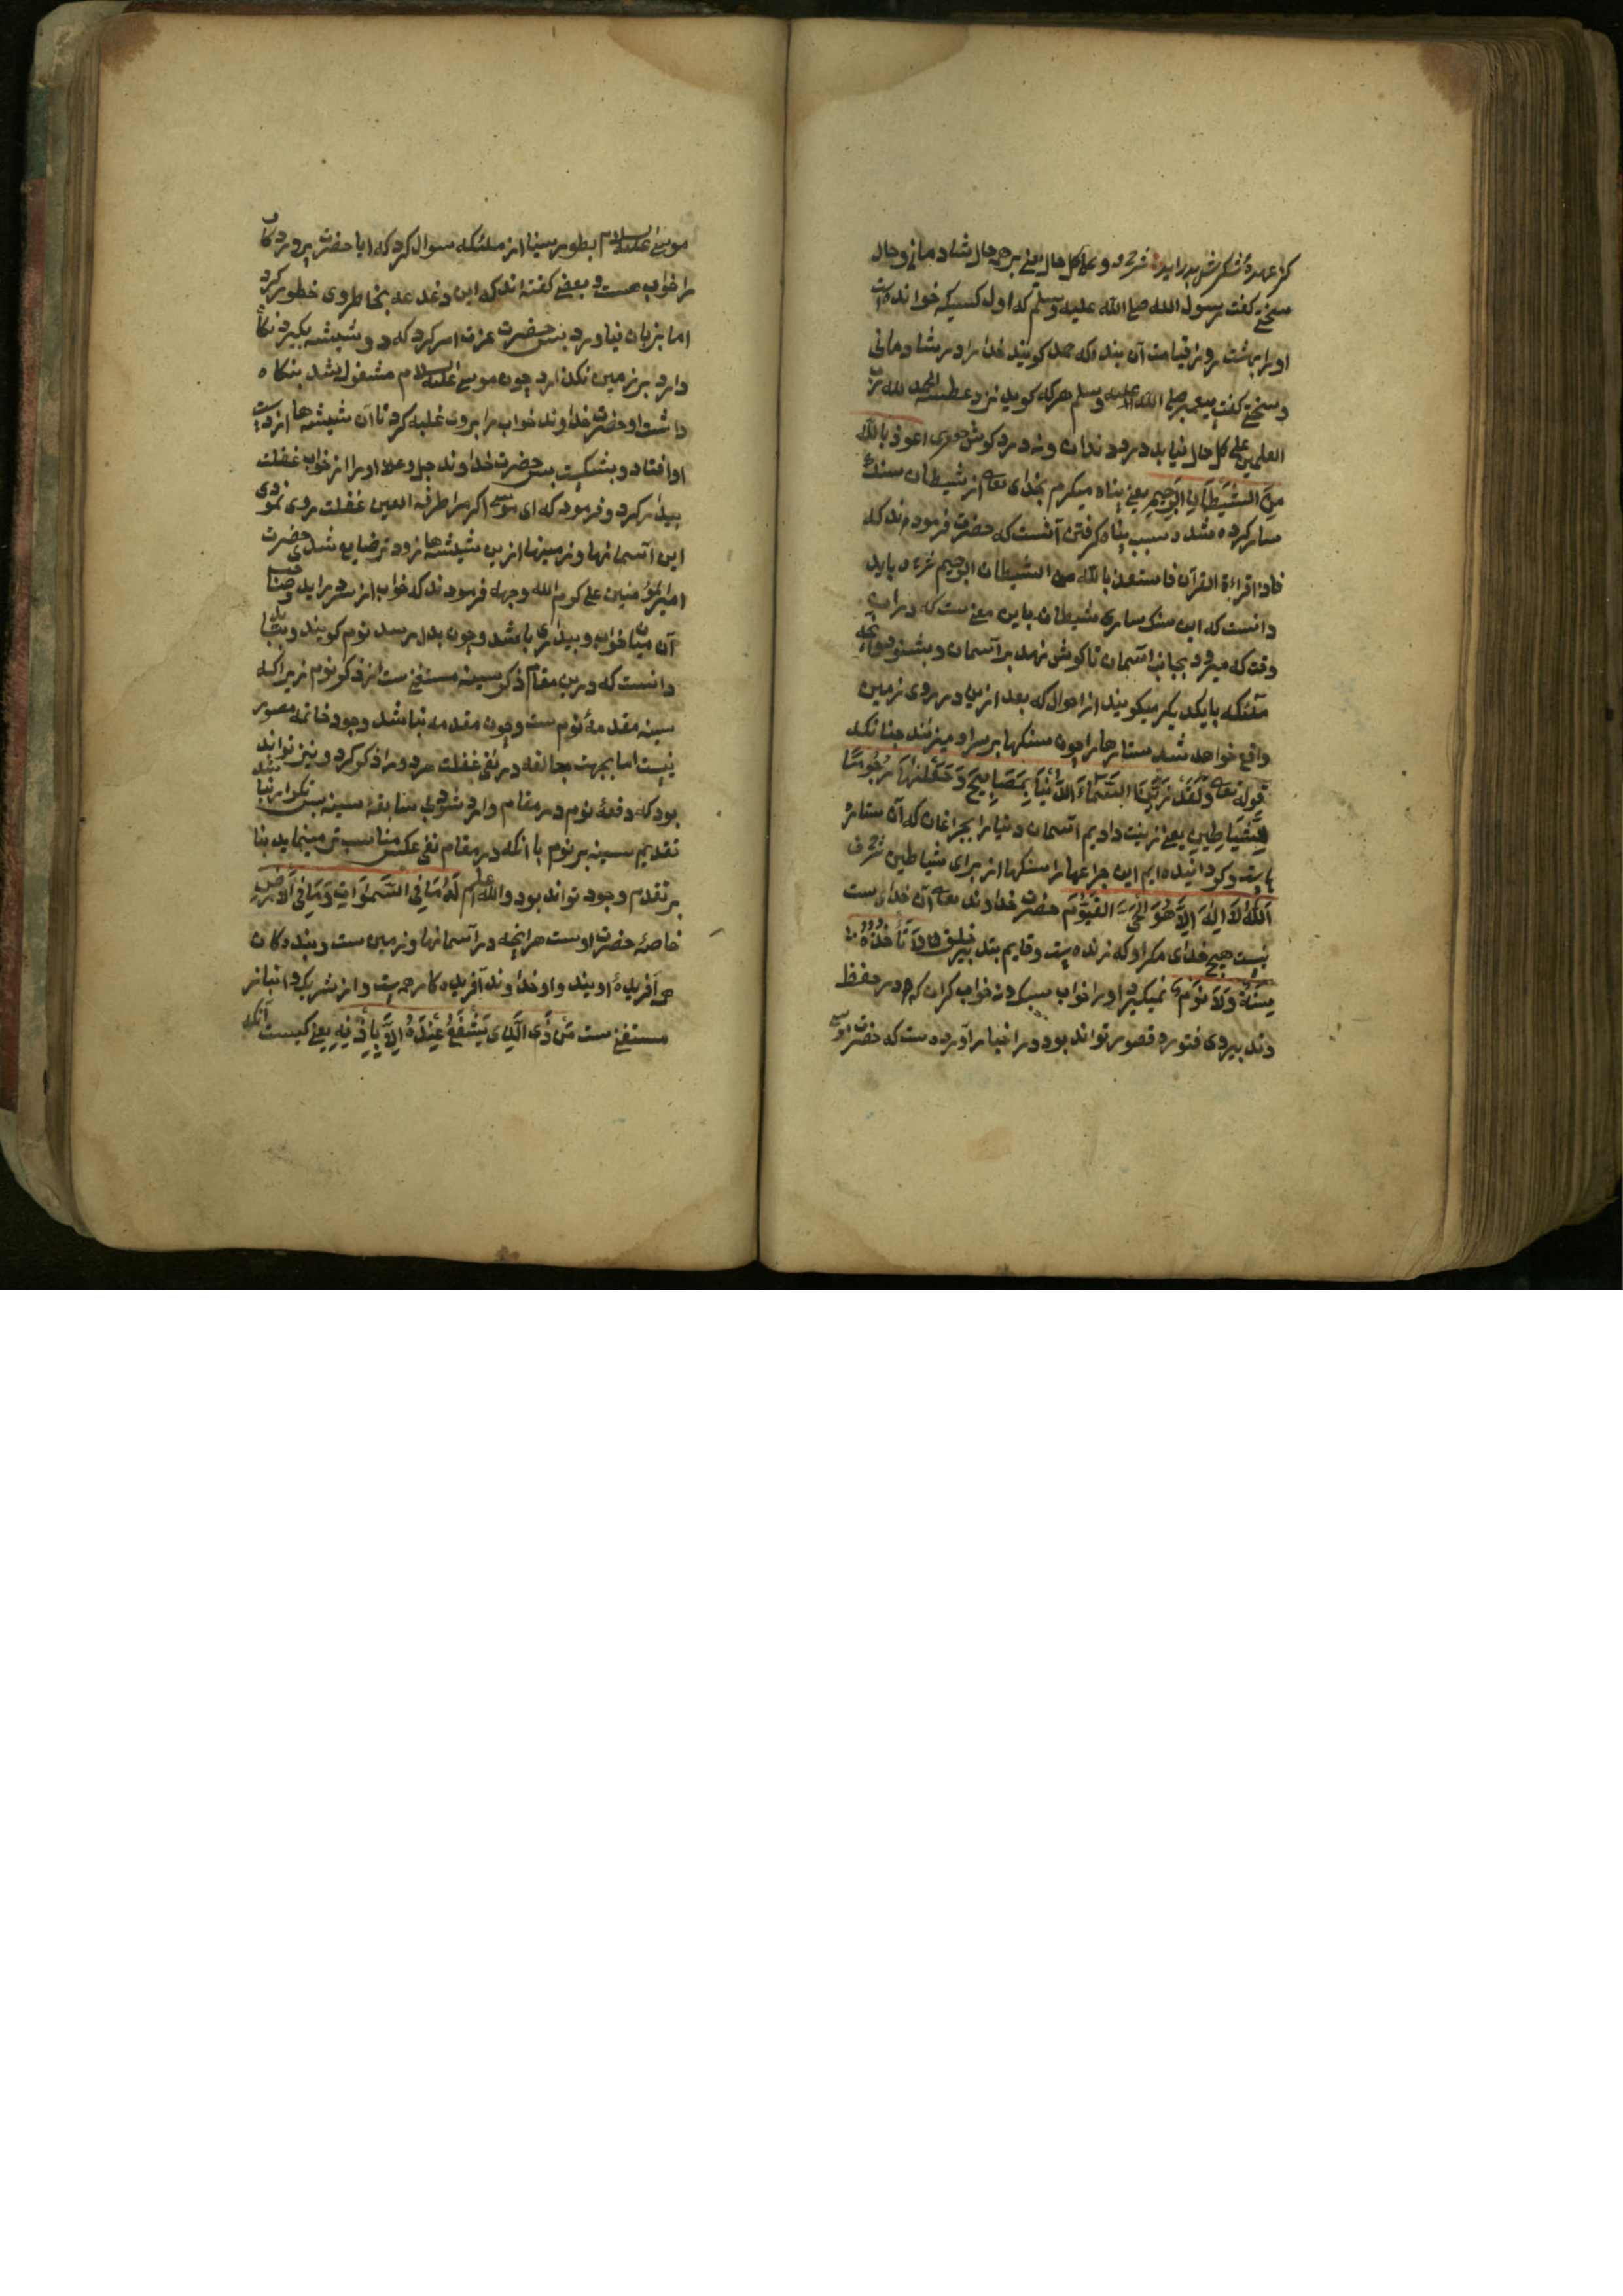 کز عهدهٔ شکرش بدر آید شرح و علی کل حال یعنی بر همه حال شادمانی و حال
سختی گفت رسول الله صلی الله علیه وسلم که اول کسیکه خوانده است
او را بهشت روز قیامت آن بندها که حمد کویند خدا را در شادمانی
و سختی کفت پیغمبر صلی الله علیه وسلم هرکه کوید نزد عطسه الحمد لله رب
العلمین علی کل حال نیابد درد دندان و نه درد کوش هرکز اعوذ بالله
من الشیطان الرجیم یعنی پناه میکرم بخدای تعالی از شیطان سنک
سار کرده شد و سبب پناه کرفتن آنست که حضرت فرمودند که
فاذا قراءة القرآن فاستعذ بالله من الشیطان الرجیم باید
دانست که این سنک ساری شیطان باین معنی ست که در آن
وقت که میرود بجانب آسمان تا کوش نهد بر آسمان و بشنود هرانچه
ملئکه با یکدیکر میکویند از احوال که بعد ازین در روی زمین
واقع خواهد شد ستارها را چون سنکها بر سر او میزنند چنانکه
قوله تعالی ولقد زینا السماء الدنیا بمصابیح وجعلناها رجوما
للشیاطین یعنی زینت دادیم آسمان دنیا را بچراغان که آن ستار
هاست و کردانیده ایم این چراغها را سنکها از برای شیاطین
الله لا اله الا هو الحی القیوم حضرت خداوند تعالی آن خدای ست
نیست هیچ خدای مکر او که زنده است و قایم بتدبیر خلق لا تأخذه
سنة ولا نوم نمیکیرد او را خواب سبک و نه خواب کران که در حفظ
وند بیروی فتور و قصور تواند بود در اخبار آورده ست که حضرت موسی
موسی علیه السلام بطور سینا از ملئکه سوال کرد که ایا حضرت پروردکار
را خواب هست و بعضی کفته اند که این دغدغه بخاطر وی خطور کرد
اما بزبان نیاورد پس حضرت عزت امر کرد که دو شیشه بکیرد نکاه
دارد بر زمین نکذارد چون موسی علیه السلام مشغول شد بنکاه
داشت او حضرت خداوند خواب را بروی غلبه کرد تا آن شیشه ها از دست
او افتاد و بشکست پس حضرت خداوند جل و علا او را از خواب غفلت
بیدار کرد و فرمود که ای موسی اکر مرا طرفة العین غفلت روی نمودی
این آسمانها و زمینها ازین شیشه ها زودتر ضایع شدی حضرت
امیر المؤمنین علی کرم الله وجهه فرمودند که خواب از سر در اید
آن میان خواب و بیداری باشد و چون بدل رسد نوم کویند و بباید
دانست که درین مقام ذکر سینه مستغنی ست از ذکر نوم زیرا که
سینه مقدمهٔ نوم ست و چون مقدمه نباشد وجود خاتمه متصور
نیست اما بجهت مبالغه در نفی غفلت هر دو را ذکر کرد و نیز تواند
بود که دفعهٔ نوم در مقام وارد شود بی سابقهٔ سینه پس تکرار نباشد
تقدیم سینه بر نوم با انکه در مقام نفی عکس مناسب تر مینماید بنا
بر تقدم وجود تواند بود والله اعلم له ما فی السموات وما فی الارض
خاصهٔ حضرت اوست هرانچه در آسمانها و زمین ست و بندکان
همه آفریدهٔ اویند و او خداوند آفریدکار همه است و از شریک و انباز
مستغنی ست من ذی الذی یشفع عنده الا باذنه یعنی کیست آنکه